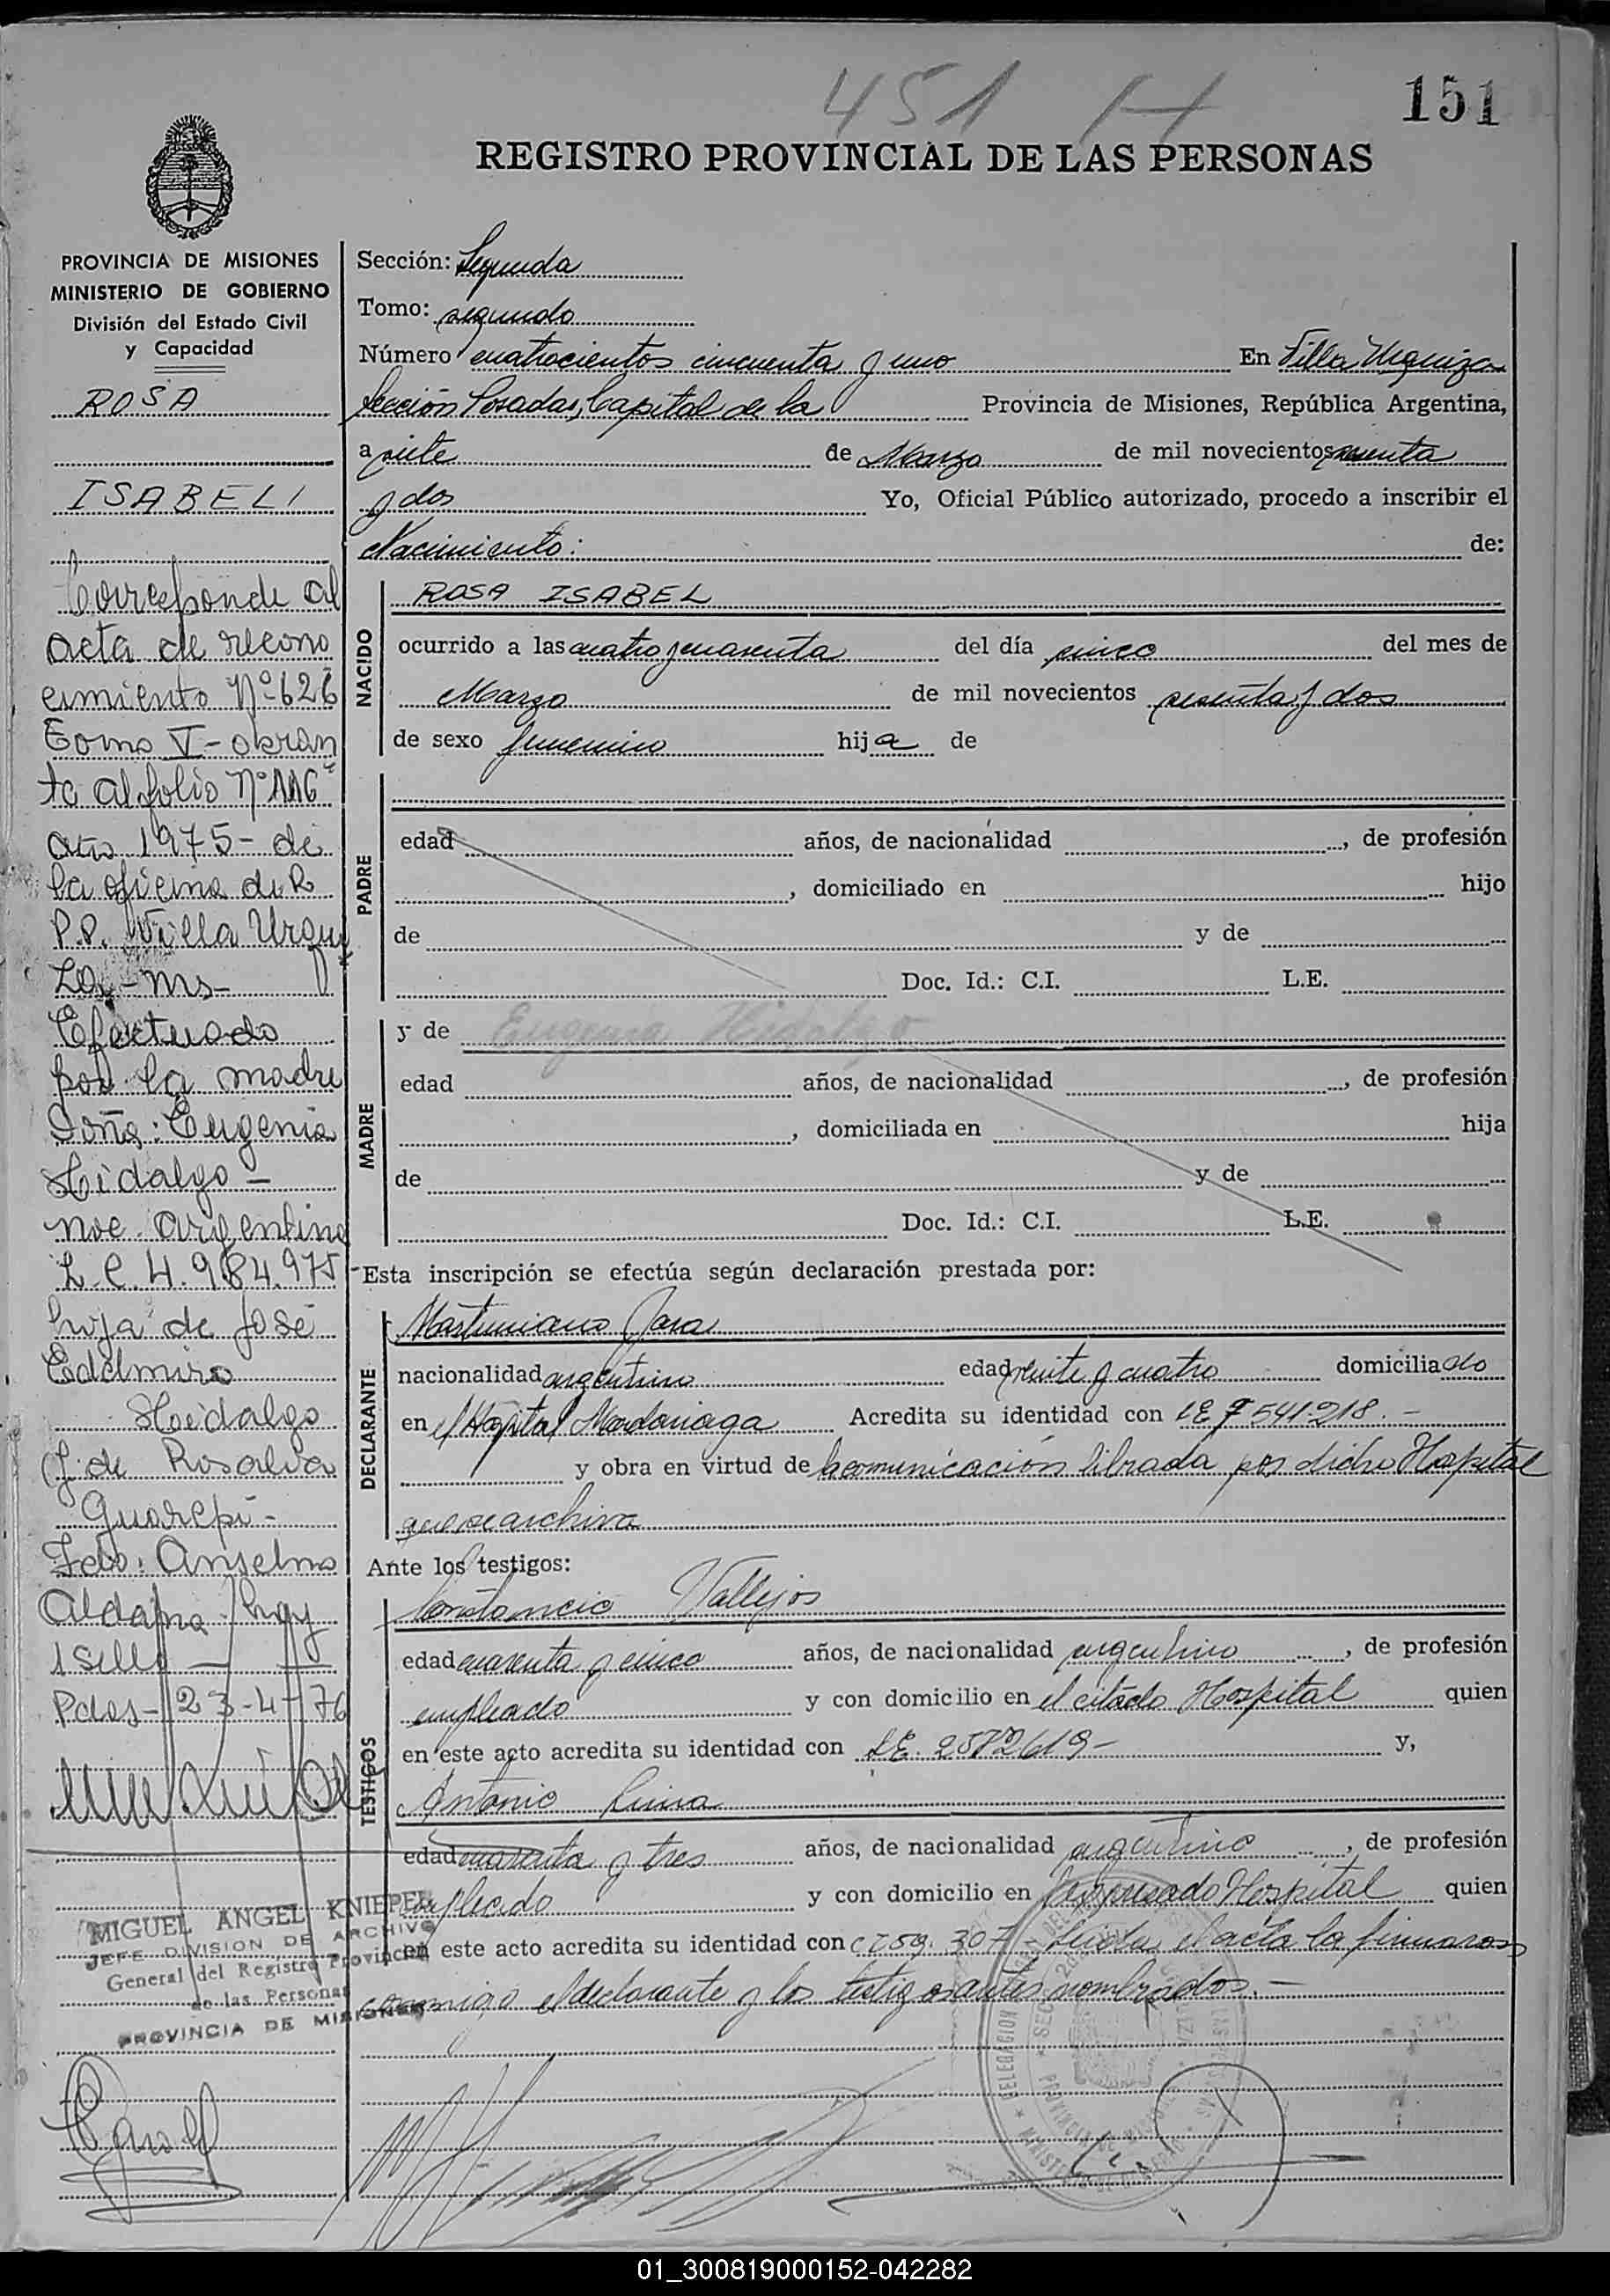 451 H
151
REGISTRO PROVINCIAL DE LAS PERSONAS
PROVINCIA DE MISIONES
MINISTERIO DE GOBIERNO
División del Estado Civil
y Capacidad
ROSA
ISABEL
Corresponde al
acta de recono
cimiento Nº 626
Tomo V - obran
te al folio Nº 116
año 1975 - de
la oficina de R
P.P. Villa Urqui
za - ms -
Efectuado
por la madre
Doña: Eugenia
Hidalgo -
nac. argentina
L.C. 4.984.975
hija de José
Edelmiro
Hidalgo
y de Rosalva
Guarepi -
Fdo: Anselmo
Aldana - hay
1 sello -
Pdas - 23-4-76
MIGUEL ANGEL KNIEPER
JEFE DIVISION DE ARCHIVO
General del Registro Provincial
de las Personas
PROVINCIA DE MISIONES
Sección: Segunda
Tomo: segundo
Número cuatrocientos cincuenta y uno En Villa Urquiza
Sección Posadas, Capital de la Provincia de Misiones, República Argentina,
a siete de Marzo de mil novecientos sesenta
y dos Yo, Oficial Público autorizado, procedo a inscribir el
Nacimiento: de:
NACIDO
ROSA ISABEL
ocurrido a las cuatro y cuarenta del día cinco del mes de
Marzo de mil novecientos sesenta y dos
de sexo femenino hija de
PADRE
edad años, de nacionalidad , de profesión
, domiciliado en hijo
de y de
Doc. Id.: C.I. L.E.
MADRE
y de Eugenia Hidalgo
edad años, de nacionalidad , de profesión
, domiciliada en hija
de y de
Doc. Id.: C.I. L.E.
Esta inscripción se efectúa según declaración prestada por:
DECLARANTE
Martiniano Jara
nacionalidad argentino edad veinte y cuatro domiciliado
en el Hospital Madariaga Acredita su identidad con LE 7541218. -
y obra en virtud de la comunicación librada por dicho Hospital
que se archiva
Ante los testigos:
TESTIGOS
Constancio Vallejos
edad cuarenta y cinco años, de nacionalidad argentino , de profesión
empleado y con domicilio en el citado Hospital quien
en este acto acredita su identidad con LE. 2572619 - y,
Antonio
edad cuarenta y tres años, de nacionalidad argentino , de profesión
empleado y con domicilio en el expresado Hospital quien
en este acto acredita su identidad con 307 - Leida el acta la firmaron
conmigo el declarante y los testigos antes nombrados. -
01_300819000152-042282